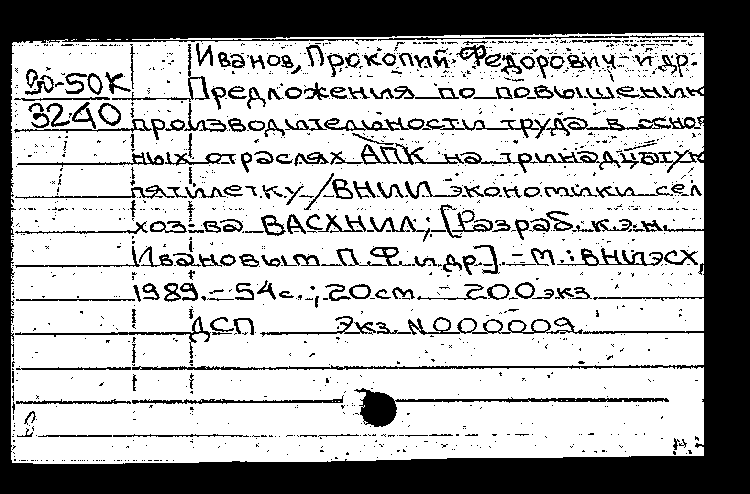 Иванов, Прокопий Федорович и др.
50К
Предложения по повышению
3240
производительности труда в основ
ных отраслях АПК на тринадцатую
пятилетку / ВНИИ экономики сел.
хоз-ва ВАСХНИЛ; [Разраб. к.э.н.
Ивановым П.Ф. и др]. - М.: ВНИЭСХ,
1989. - 54с.; 20см. - 200экз
ДСП Экз. N000009